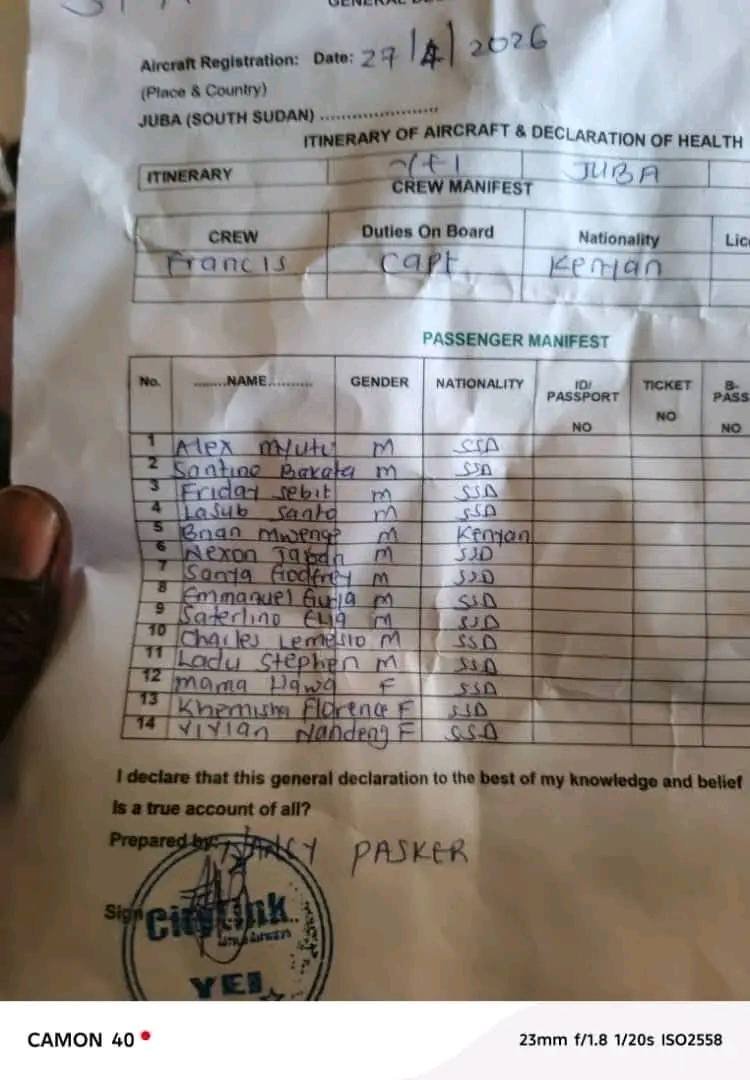 Aircraft Registration: Date: 27/4/2026
(Place & Country)
JUBA (SOUTH SUDAN) ........................
ITINERARY OF AIRCRAFT & DECLARATION OF HEALTH
ITINERARY JUBA
CREW MANIFEST
CREW Duties On Board Nationality
Francis Capt Kenyan
PASSENGER MANIFEST
No. ........NAME.......... GENDER NATIONALITY ID/ PASSPORT NO TICKET NO B- PASS NO
1 Alex M SSD
2 Santino Bakata M SSD
3 Friday Sebit M SSD
4 Lasub Santo M SSD
5 Brian Mwenge M Kenyan
6 Nexon Taban M SSD
7 Sanya Godfrey M SSD
8 Emmanuel M SSD
9 Saterlino Elia M SSD
10 Charles M SSD
11 Ladu Stephen M SSD
12 Mama Hawa F SSD
13 Khemisha Florence F SSD
14 Vivian Nandeng F SSD
I declare that this general declaration to the best of my knowledge and belief
Is a true account of all?
Prepared by: PASKER
Sign
CityLink
YEI
CAMON 40 23mm f/1.8 1/20s ISO2558